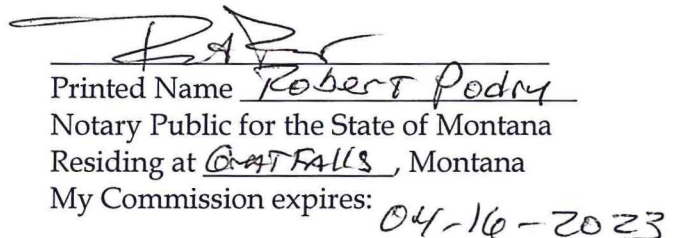 Printed Name Robert Podry
Notary Public for the State of Montana
Residing at Great Falls, Montana
My Commission expires: 04-16-2023